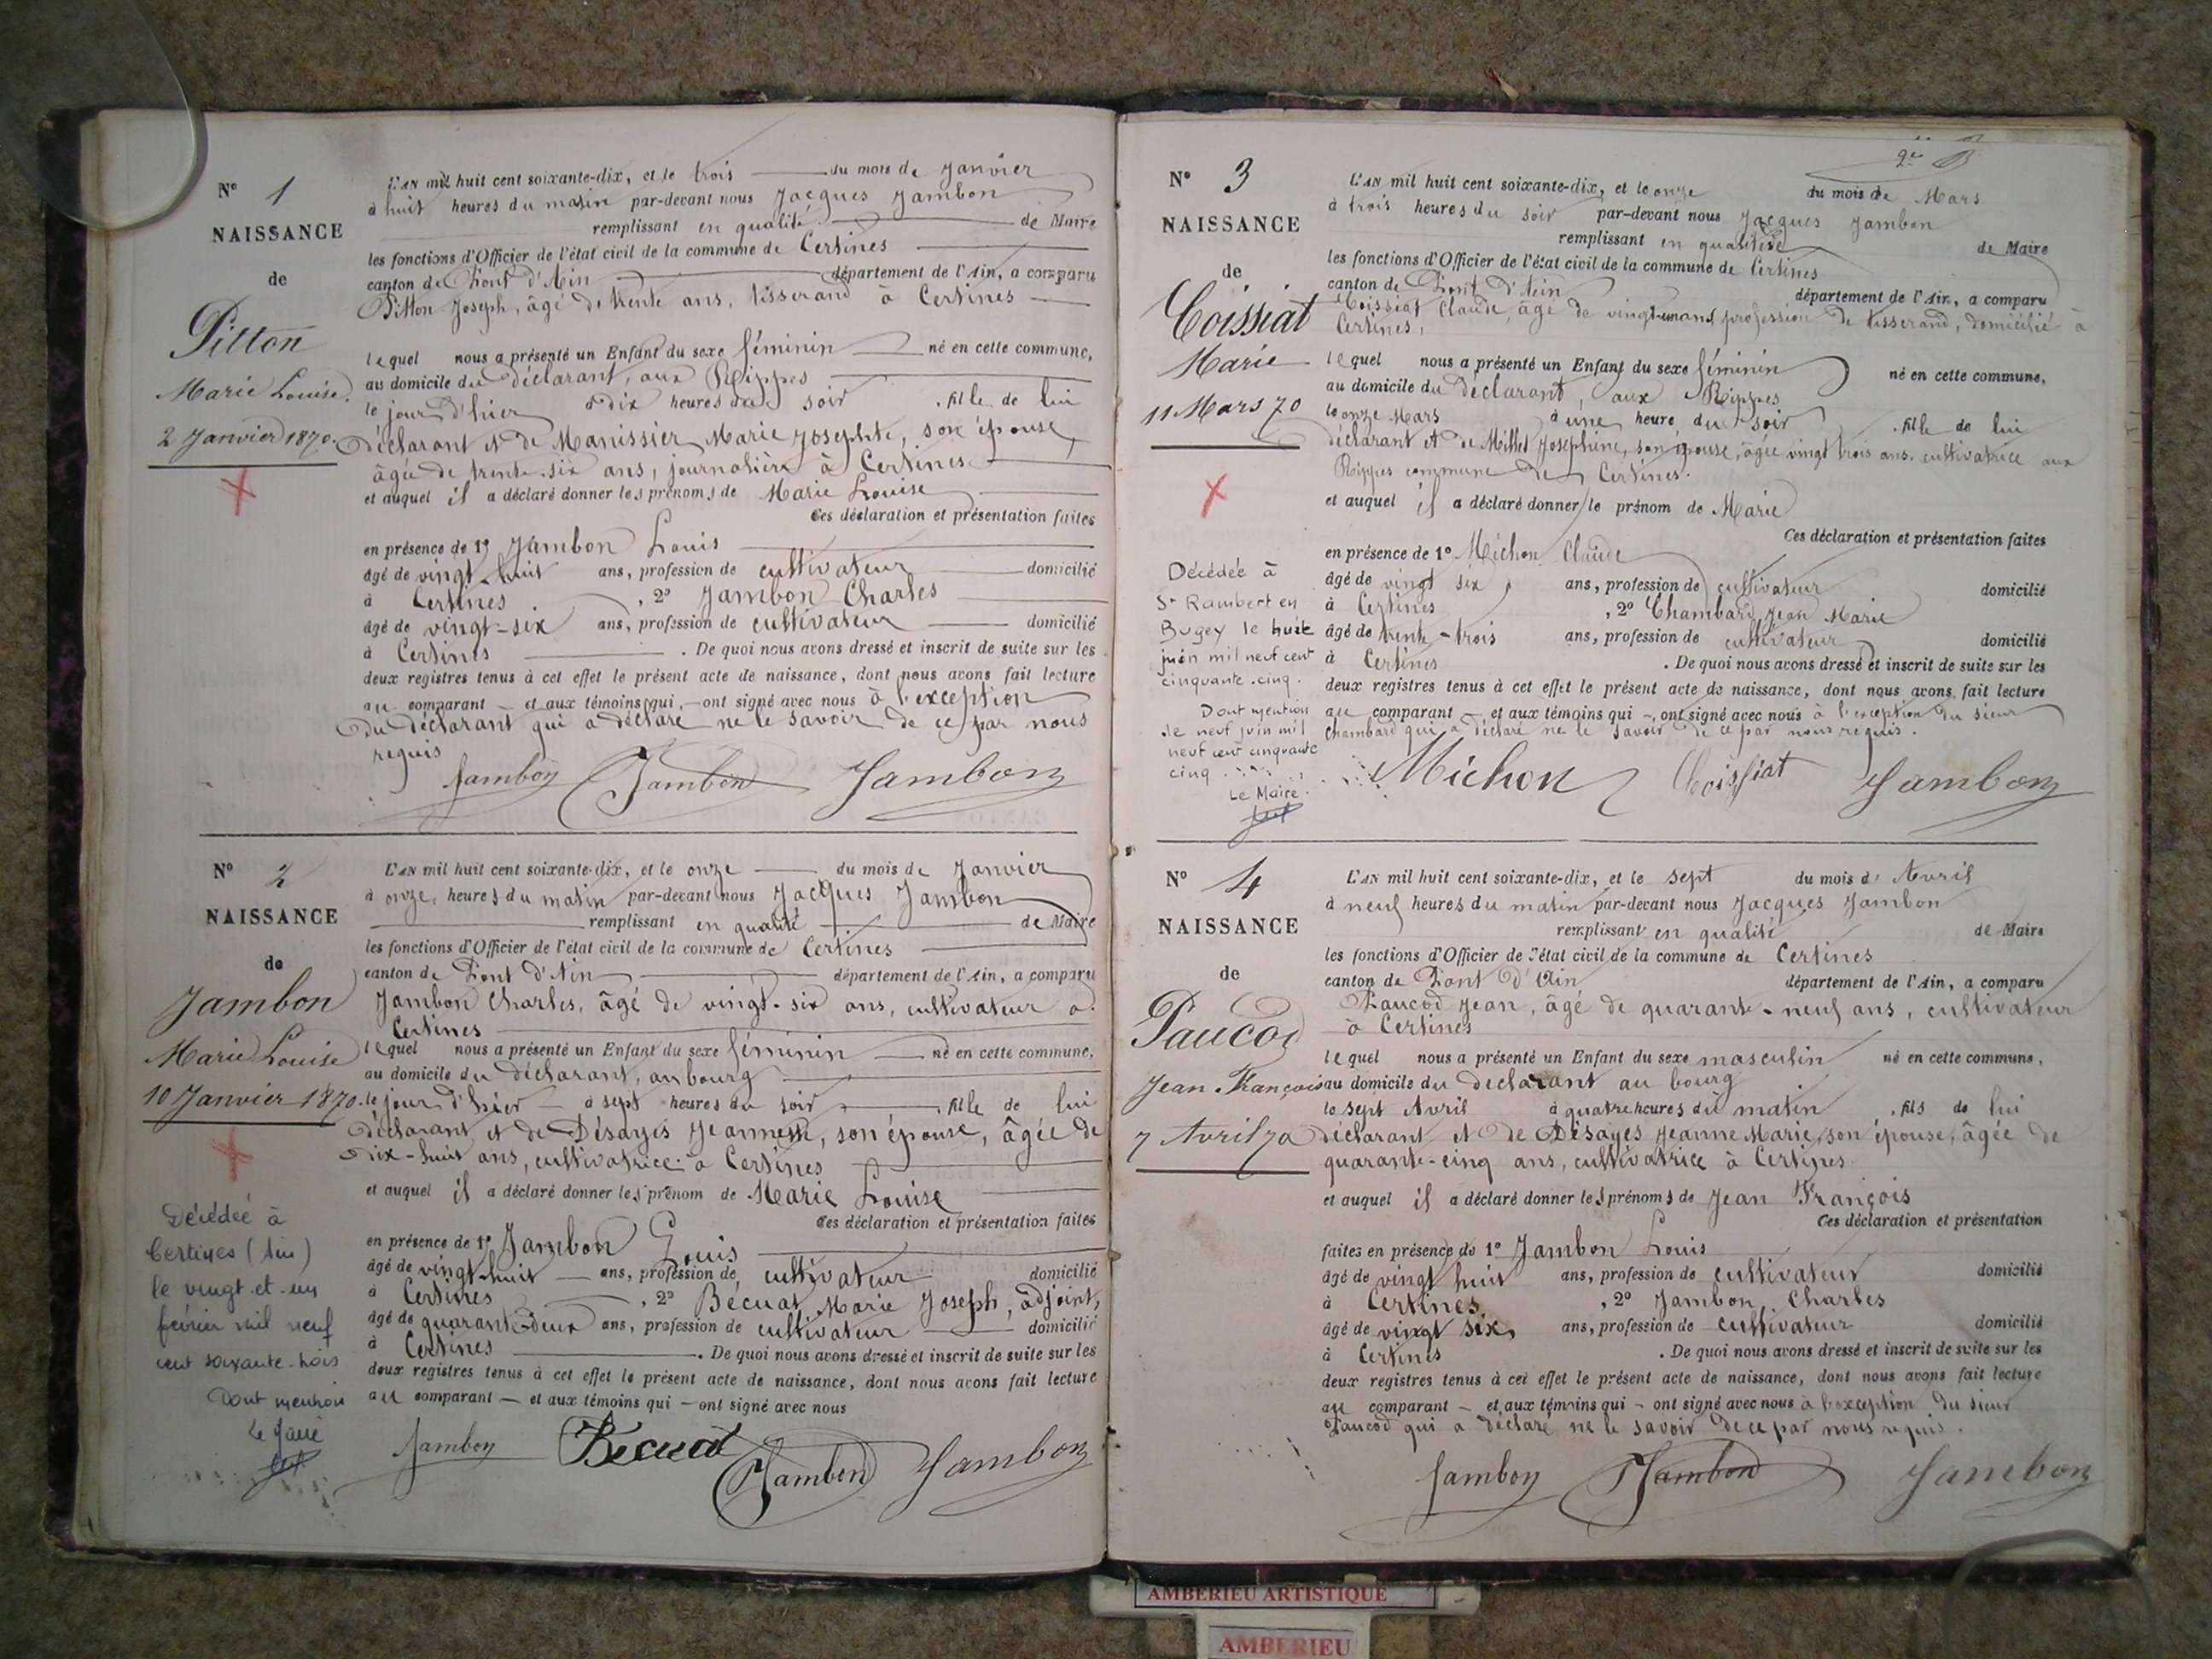 N° 1
NAISSANCE
de
Pitton
Marie Louise.
2 Janvier 1870.
L'AN mil huit cent soixante-dix, et le trois du mois de Janvier
à huit heures du matin par-devant nous Jacques Jambon
remplissant en qualité de Maire
les fonctions d'Officier de l'état civil de la commune de Certines
canton de Pont d'Ain département de l'Ain, a comparu
Pitton Joseph, âgé de trente ans, tisserand à Certines
lequel nous a présenté un Enfant du sexe féminin né en cette commune,
au domicile du déclarant, aux Rippes
le jour d'hier à dix heures du soir , fille de lui
déclarant et de Manissier Marie Josephte, son épouse,
âgée de trente-six ans, journalière à Certines
et auquel il a déclaré donner les prénoms de Marie Louise
Ces déclaration et présentation faites
en présence de 1° Jambon Louis
âgé de vingt-huit ans, profession de cultivateur domicilié
à Certines , 2° Jambon Charles
âgé de vingt-six ans, profession de cultivateur domicilié
à Certines . De quoi nous avons dressé et inscrit de suite sur les
deux registres tenus à cet effet le présent acte de naissance, dont nous avons fait lecture
au comparant — et aux témoins qui, — ont signé avec nous à l'exception
du déclarant qui a déclaré ne le savoir de ce par nous
requis
Jambon Jambon Jambon
N° 2
NAISSANCE
de
Jambon
Marie Louise
10 Janvier 1870.
Décédée à
Certines (Ain)
le vingt-et-un
février mil neuf
cent soixante-trois
Dont mention
Le Maire
L'AN mil huit cent soixante-dix, et le onze du mois de Janvier
à onze, heures du matin par-devant nous Jacques Jambon
remplissant en qualité de Maire
les fonctions d'Officier de l'état civil de la commune de Certines
canton de Pont d'Ain département de l'Ain, a comparu
Jambon Charles, âgé de vingt-six ans, cultivateur à
Certines
lequel nous a présenté un Enfant du sexe féminin né en cette commune,
au domicile du déclarant, au bourg
le jour d'hier — à sept heures du soir , fille de lui
déclarant et de Désayes Jeannette, son épouse, âgée de
dix-huit ans, cultivatrice à Certines
et auquel il a déclaré donner les prénom de Marie Louise
Ces déclaration et présentation faites
en présence de 1° Jambon Louis
âgé de vingt-huit ans, profession de cultivateur domicilié
à Certines , 2° Bécuat Marie Joseph, adjoint,
âgé de quarante-deux ans, profession de cultivateur domicilié
à Certines . De quoi nous avons dressé et inscrit de suite sur les
deux registres tenus à cet effet le présent acte de naissance, dont nous avons fait lecture
au comparant — et aux témoins qui — ont signé avec nous
Jambon Bécuat Jambon Jambon
N° 3
NAISSANCE
de
Coissiat
Marie
11 Mars 70
Décédée à
St Rambert en
Bugey le huit
juin mil neuf cent
cinquante-cinq.
Dont mention
le neuf juin mil
neuf cent cinquante
cinq
Le Maire.
L'AN mil huit cent soixante-dix, et le onze du mois de Mars
à trois heures du soir par-devant nous Jacques Jambon
remplissant en qualité de Maire
les fonctions d'Officier de l'état civil de la commune de Certines
canton de Pont d'Ain département de l'Ain, a comparu
Coissiat Claude, âgé de vingt-un ans, profession de tisserand, domicilié à
Certines,
lequel nous a présenté un Enfant du sexe féminin né en cette commune,
au domicile du déclarant, aux Rippes
le onze Mars à une heure du soir , fille de lui
déclarant et de Millet Josephine, son épouse, âgée vingt trois ans, cultivatrice aux
Rippes commune de Certines.
et auquel il a déclaré donner le prénom de Marie
Ces déclaration et présentation faites
en présence de 1° Michon Claude
âgé de vingt six ans, profession de cultivateur domicilié
à Certines , 2° Chambard Jean Marie
âgé de trente-trois ans, profession de cultivateur domicilié
à Certines . De quoi nous avons dressé et inscrit de suite sur les
deux registres tenus à cet effet le présent acte de naissance, dont nous avons fait lecture
au comparant — et aux témoins qui —, ont signé avec nous à l'exception du sieur
Chambard qui a déclaré ne le savoir de ce par nous requis.
Michon Coissiat Jambon
N° 4
NAISSANCE
de
Paucod
Jean François
7 Avril 70
L'AN mil huit cent soixante-dix, et le sept du mois d'Avril
à neuf heures du matin par-devant nous Jacques Jambon
remplissant en qualité de Maire
les fonctions d'Officier de l'état civil de la commune de Certines
canton de Pont d'Ain département de l'Ain, a comparu
Paucod Jean, âgé de quarante-neuf ans, cultivateur
à Certines
lequel nous a présenté un Enfant du sexe masculin né en cette commune,
au domicile du déclarant au bourg
le sept Avril à quatre heures du matin , fils de lui
déclarant et de Désayes Jeanne Marie, son épouse, âgée de
quarante-cinq ans, cultivatrice à Certines
et auquel il a déclaré donner les prénoms de Jean François
Ces déclaration et présentation
faites en présence de 1° Jambon Louis
âgé de vingt huit ans, profession de cultivateur domicilié
à Certines , 2° Jambon Charles
âgé de vingt six, ans, profession de cultivateur domicilié
à Certines . De quoi nous avons dressé et inscrit de suite sur les
deux registres tenus à cet effet le présent acte de naissance, dont nous avons fait lecture
au comparant — et aux témoins qui — ont signé avec nous à l'exception du sieur
Paucod qui a déclaré ne le savoir de ce par nous requis.
Jambon Jambon Jambon
AMBERIEU ARTISTIQUE
AMBERIEU